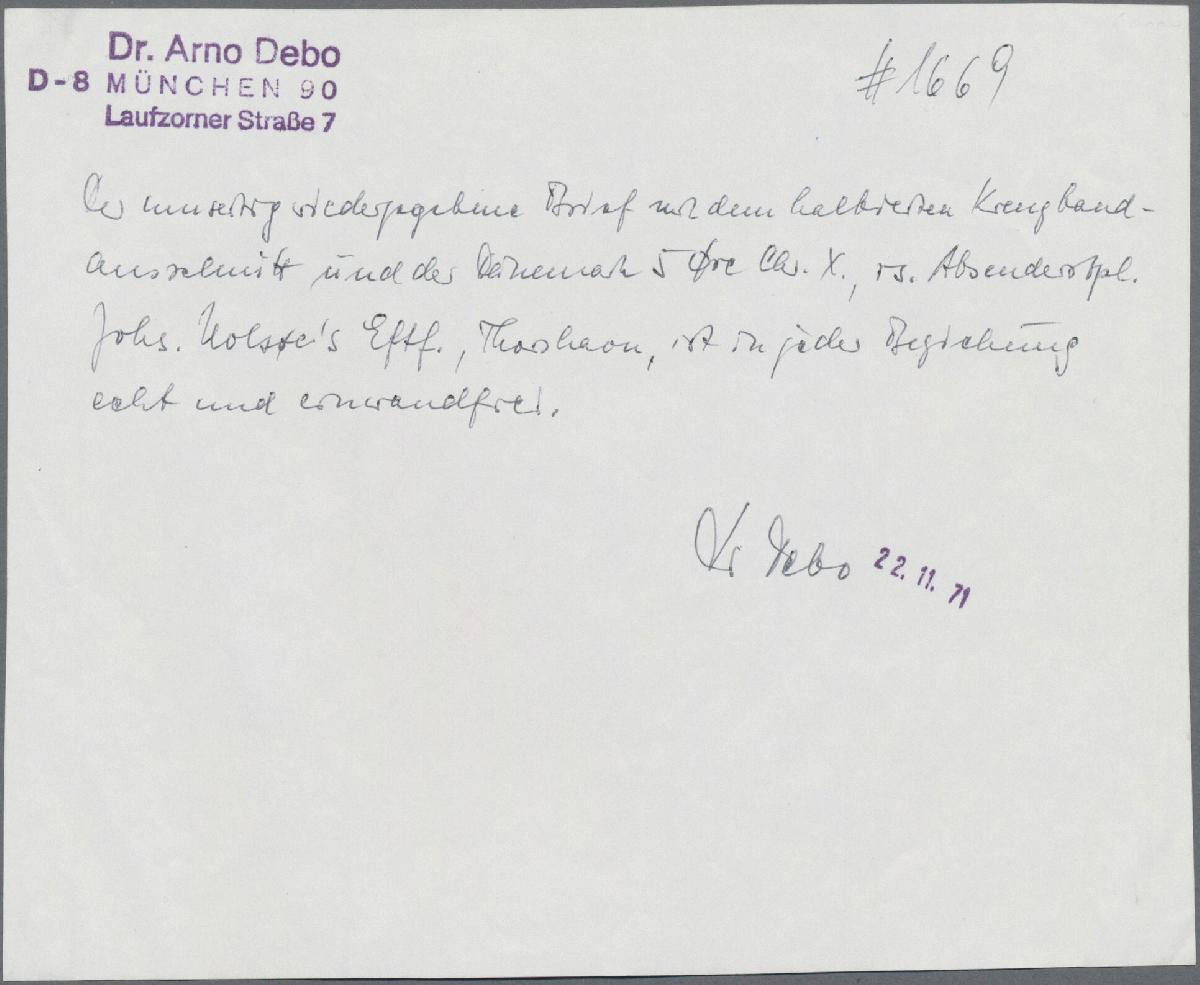 Dr. Arno Debo
D-8 MÜNCHEN 90
Laufzorner Straße 7
#1669
Der umseitig wiedergegebene Brief mit dem halbierten Kreuzband-
ausschnitt und der Dänemark 5 Øre Chr. X., rs. Absenderstpl.
Johs. Holste's Eftf., Thorshavn, ist in jeder Beziehung
echt und einwandfrei.
Dr Debo 22.11.71